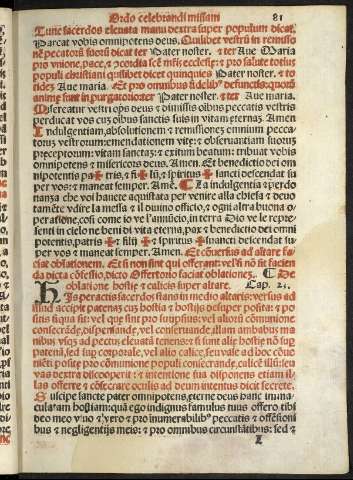 Ordo celebrandi missam 81
Tunc sacerdos eleuata manu dextra super populum dicat.
Parcat vobis omnipotens deus. Quilibet vestrū in remissio
nē peccatorū suorū dicat ter Pater noster. ⁊ ter Aue Maria
pro vnione, pace, ⁊ cōcordia scē mr̄is ecclesie: ⁊ pro salute totius
populi christiani quilibet dicat quinquies Pater noster. ⁊ to
tidez Aue maria. Et pro omnibus fidelibꝰ defunctis: quorū
anime sunt in purgatorio: ter Pater noster. ⁊ ter Aue maria.
Misereatur vestri oīps deus ⁊ dimissis oībus peccatis vestris
perducat vos cuz oībus sanctis suis in vitam eternaz. Amen
Indulgentiam, absolutionem ⁊ remissionez omnium pecca
toruz vestrorum: emendationem vite: ⁊ obseruantiam suoruz
preceptorum: vitam sanctaz: ⁊ exitum beatum: tribuat vobis
omnipotens ⁊ misericors deus. Amen. Et benedictio dei om
nipotentis pa ✠ tris, ⁊ fi ✠ lij, ⁊ spiritus ✠ sancti descendat su
per vos: ⁊ maneat semper. Amē. ¶ La indulgentia ⁊ perdo
nanza che voi hauete aquistata per venire alla chiesa ⁊ deuo
tamēte vdire la messa ⁊ il diuino officio, ⁊ ogni altra buona o
peratione, cosi come io ve l'annūcio, in terra Dio ve le repre
senti in cielo ne beni di vita eterna, pax ⁊ benedictio dei omni
potentis, patris ✠ ⁊ filij ✠ ⁊ spiritus ✠ sancti descendat su
per vos ⁊ maneat semper. Amen. Et cōuersus ad altare fa
ciat oblationem. Et si non sint qui offerant: vel si nō sit facien
da dicta cōfessio, dicto Offertorio faciat oblationez. ¶ De
oblatione hostie ⁊ calicis super altare. Cap. 23.
His peractis sacerdos stans in medio altaris: versus ad
illud accipit patenaz cuz hostia ⁊ hostijs desuper posita: ⁊ po
sitis si qua sit: vel que sint pro scripsius: vel alioruz cōmunione
consecrāde, disp̄ensande, vel conseruande, illam ambabus ma
nibus vsqz ad pectus eleuatā tenens: ⁊ si sunt alie hostie nō sup
patenā, sed sup corporale, vel alio calice, seu vase ad hoc cōue
niēti posite pro cōmunione populi consecrande, calicē illū: seu
vas dextra discooperit ⁊ intentione sua disponens etiam il
las offerre ⁊ cōsecrare oculis ad deum intentus dicit secrete.
Suscipe sancte pater omnipotens, eterne deus hanc imma
culatam hostiam: quā ego indignus famulus tuus offero tibi
deo meo viuo ⁊ vero ⁊ pro innumerabilibꝰ peccatis ⁊ offēsioni
bus ⁊ negligentijs meis: ⁊ pro omnibus circunstātibus: sed ⁊